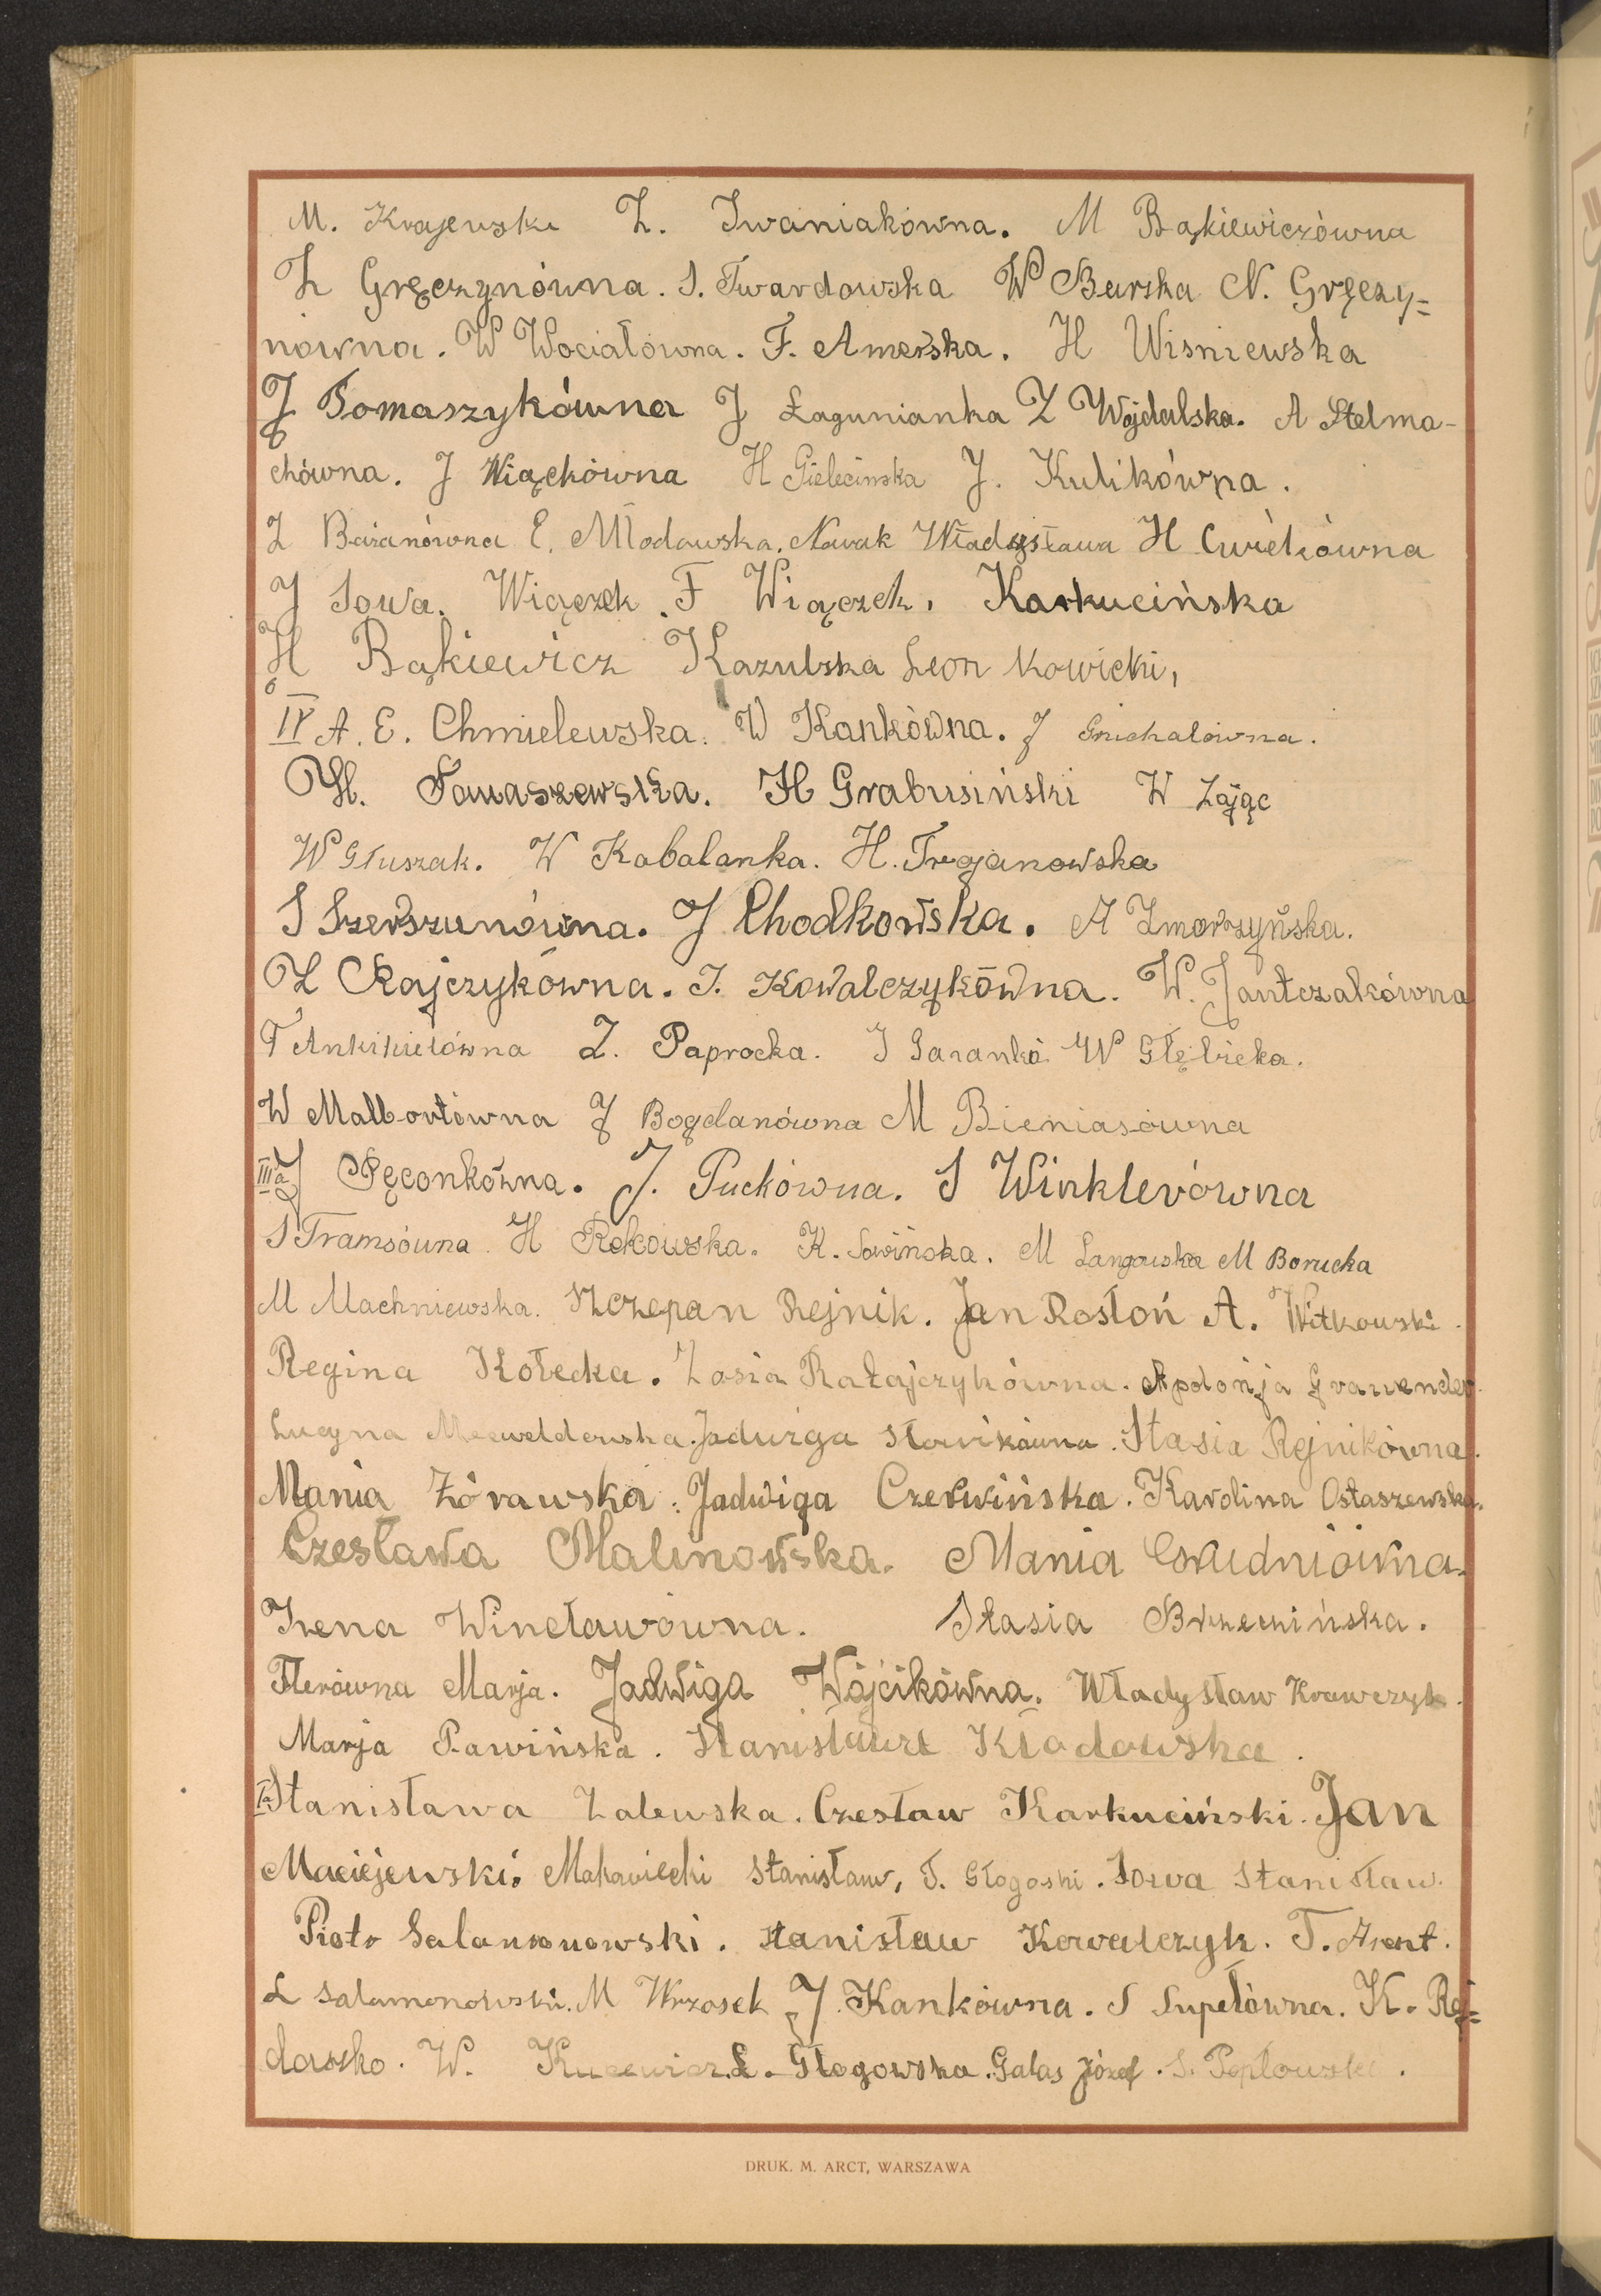 M. Krajewska Z. Iwaniakówna. M Bąkiewiczówna
Z Gręczynówna. S. Twardowska W Burska N. Gręczy=
nówna. W Wociałówna. F. Amerska. H Wisniewska
J Tomaszykówna J Łagunianka Z Wojdalska. A Stelma-
chówna. J Wiąckówna H Gielecinska J. Kulikówna.
Z Bażanówna E. Młodowska. Nowak Władysława H Cwiekówna
J Sowa. Wiączek F Wiączek. Karkucińska
H Bąkiewicz Kazulska Leon Nowicki,
IV A. E. Chmielewska. W Kankówna. J Gnichalówna.
H. Tomaszewska. H Grabusiński W Zając
W Głuszak. W Kabalanka. H. Trojanowska
S Szerszunówna. J Chodkowska. A Zmorzyńska.
Z Rajczykówna. J. Kowalczykówna. W. Jantczakówna
T Ankikielówna Z. Paprocka. J Saranko W Głębicka.
W Malbortówna J Bogdanówna M Bieniasówna
III a J Pęconkówna. J. Puckówna. S Winklerówna
S Tramsówna. H Rokowska. K. Sowińska. M Langowska M Borucka
M Machniewska. Szczepan Rejnik. Jan Rosłoń A. Witkowski.
Regina Kołecka. Zosia Ratajczykówna. Apolonja Grawender.
Lucyna Jadwiga Słowikówna. Stasia Rejnikówna.
Mania Żórawska. Jadwiga Czerwińska. Karolina Ostaszewska.
Czesława Malinowska. Mania
Irena Wincławówna. Stasia Brzezińska.
Flerówna Marja. Jadwiga Wójcikówna. Władysław Krawczyk.
Marja Pawińska. Stanisława Kłodowska.
Stanisława Zalewska. Czesław Karkuciński. Jan
Maciejewski. Makowiecki Stanisław, T. Głogoski. Sowa Stanisław.
Piotr Salamonowski. Stanisław Kowalczyk. T. Arent.
L Salamonowski. M Wrzosek J. Kankówna. S Supełówna. K. Rej=
daszko. W. Kucewicz. L. Głogowska. Galas Józef. S. Peplowski.
DRUK. M. ARCT, WARSZAWA